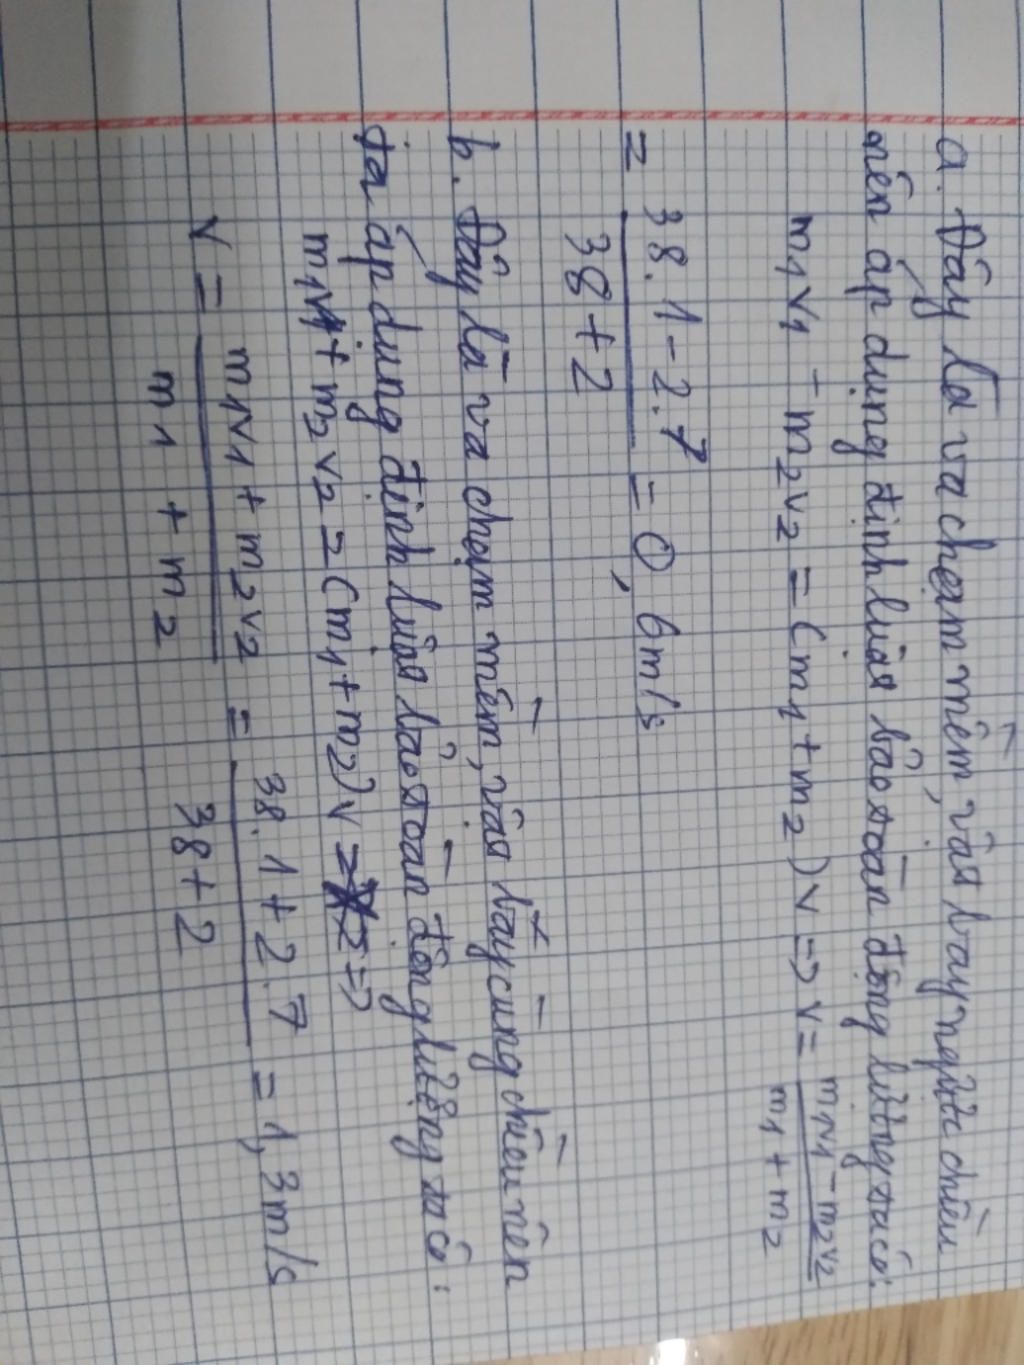 a. Đây là va chạm mềm, vật bay ngược chiều
nên áp dụng định luật bảo toàn động lượng ta có:
m₁v₁ - m₂v₂ = (m₁ + m₂)v => v = (m₁v₁ - m₂v₂)/(m₁ + m₂)
= (38.1 - 2.7)/(38 + 2) = 0,6m/s
b. Đây là va chạm mềm, vật bay cùng chiều nên
ta áp dụng định luật bảo toàn động lượng ta có:
m₁v₁ + m₂v₂ = (m₁ + m₂)v =>
v = (m₁v₁ + m₂v₂)/(m₁ + m₂) = (38.1 + 2.7)/(38 + 2) = 1,3m/s